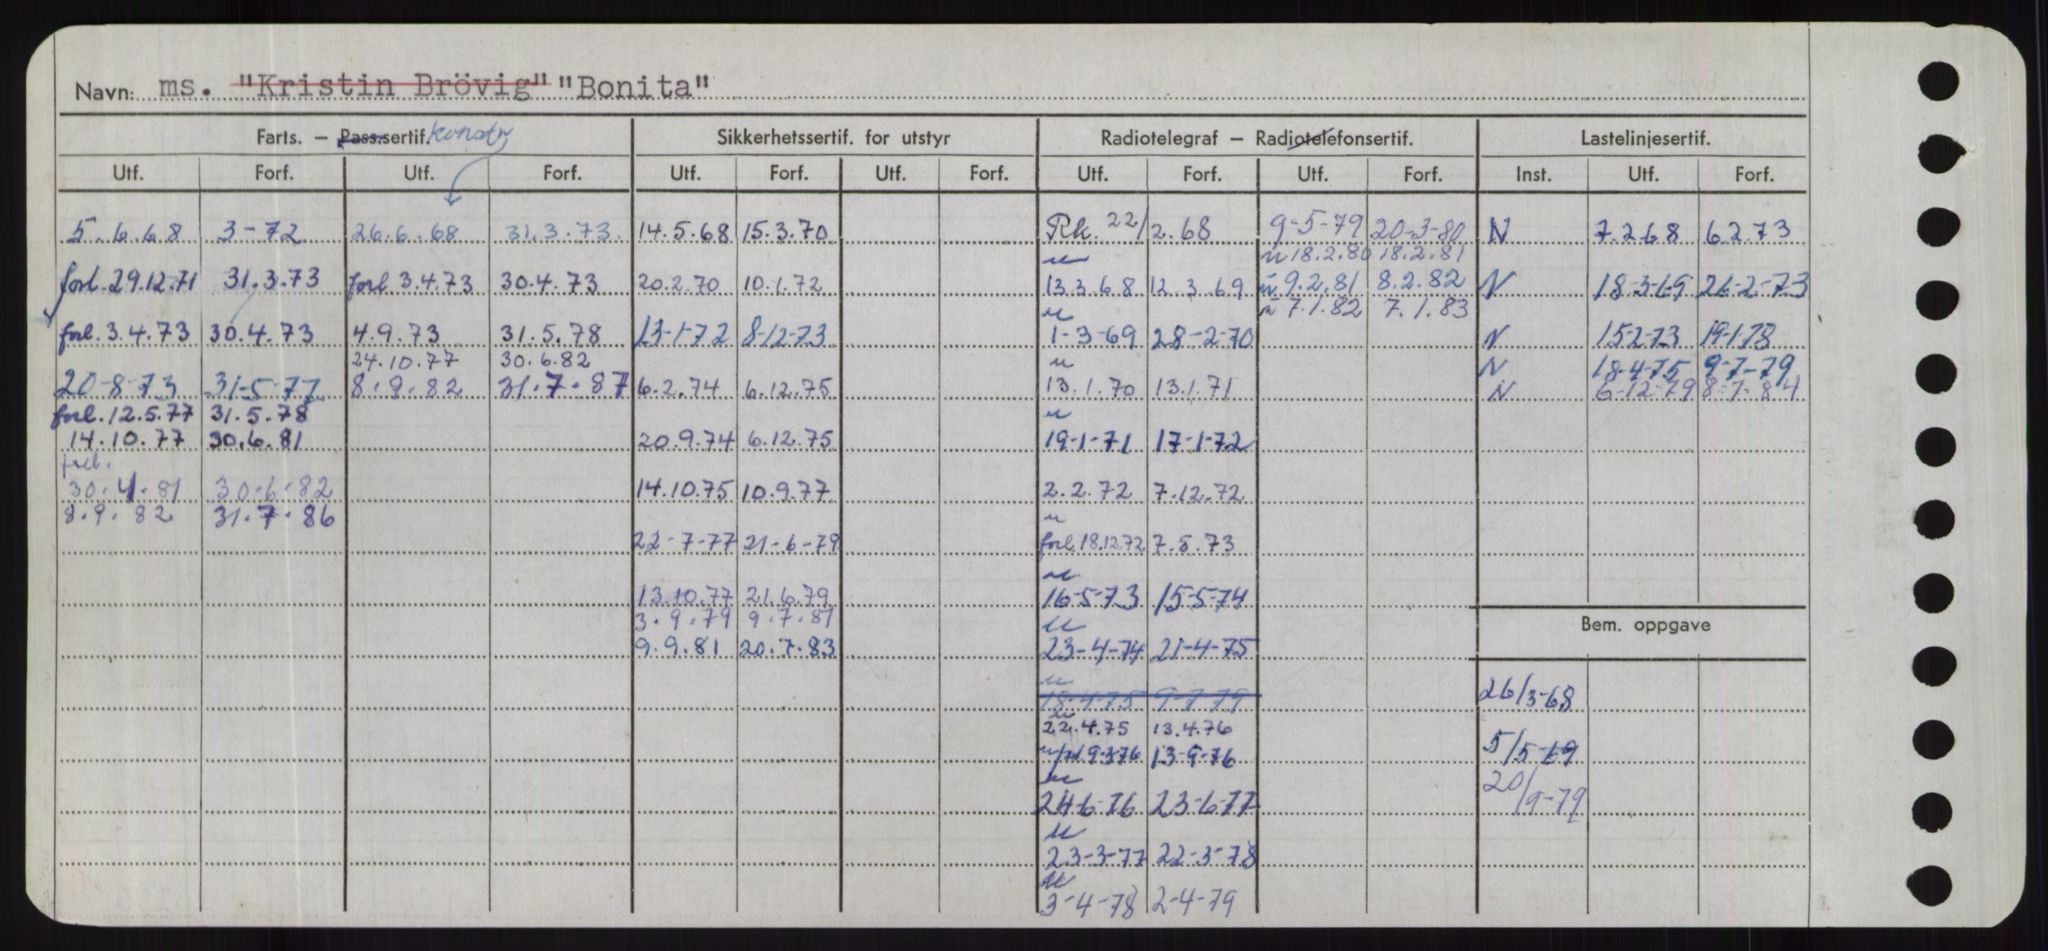 Navn: ms. "Kristin Brövig" "Bonita"
Farts. — Passsertif. konstr Sikkerhetssertif. for utstyr Radiotelegraf — Radiotelefonsertif. Lastelinjesertif.
Utf. Forf. Utf. Forf. Utf. Forf. Utf. Forf. Utf. Forf. Utf. Forf. Inst. Utf. Forf.
5.6.68 3-72 26.6.68 31.3.73. 14.5.68 15.3.70 Rk. 22/2.68 9-5-79 20-3-80 N 7.2.68 6.2.73
u u 18.2.80 18.2.81
forl. 29.12.71 31.3.73 forl 3.4.73 30.4.73 20.2.70 10.1.72 13.3.68 12.3.69 u 9.2.81 8.2.82 N 18-3-69 26-2-73
u u 7.1.82 7.1.83
forl. 3.4.73 30.4.73 4.9.73 31.5.78 13-1-72 8-12-73 1-3-69 28-2-70 N 15-2-73 19-1-78
24.10.77 30.6.82 u N 18-4-75 9-7-79
20-8-73 31-5-77 8.9.82 31.7.87 6.2.74 6.12.75 13.1.70 13.1.71 N 6-12-79 8-7-84
forl. 12.5.77 31.5.78 u
14.10.77 30.6.81 20.9.74 6.12.75 19-1-71 17-1-72
forl.
30.4.81 30.6.82 14.10.75 10.9.77 2.2.72 7.12.72
8.9.82 31.7.86 u
22-7-77 21-6-79 forl. 18.12.72 7.5.73
u
13.10.77 21.6.79 16-5-73 15-5-74
3.9.79 9.7.81 u
Bem. oppgave
9.9.81 20.7.83 23-4-74 21-4-75
u
18-4-75 9-7-79 26/3-68
u
22.4.75 13.4.76
9-3-76 13-9-76 5/5-69
u
24-6-76 23-6-77 20/9-79
u
23-3-77 22-3-78
u
3-4-78 2-4-79